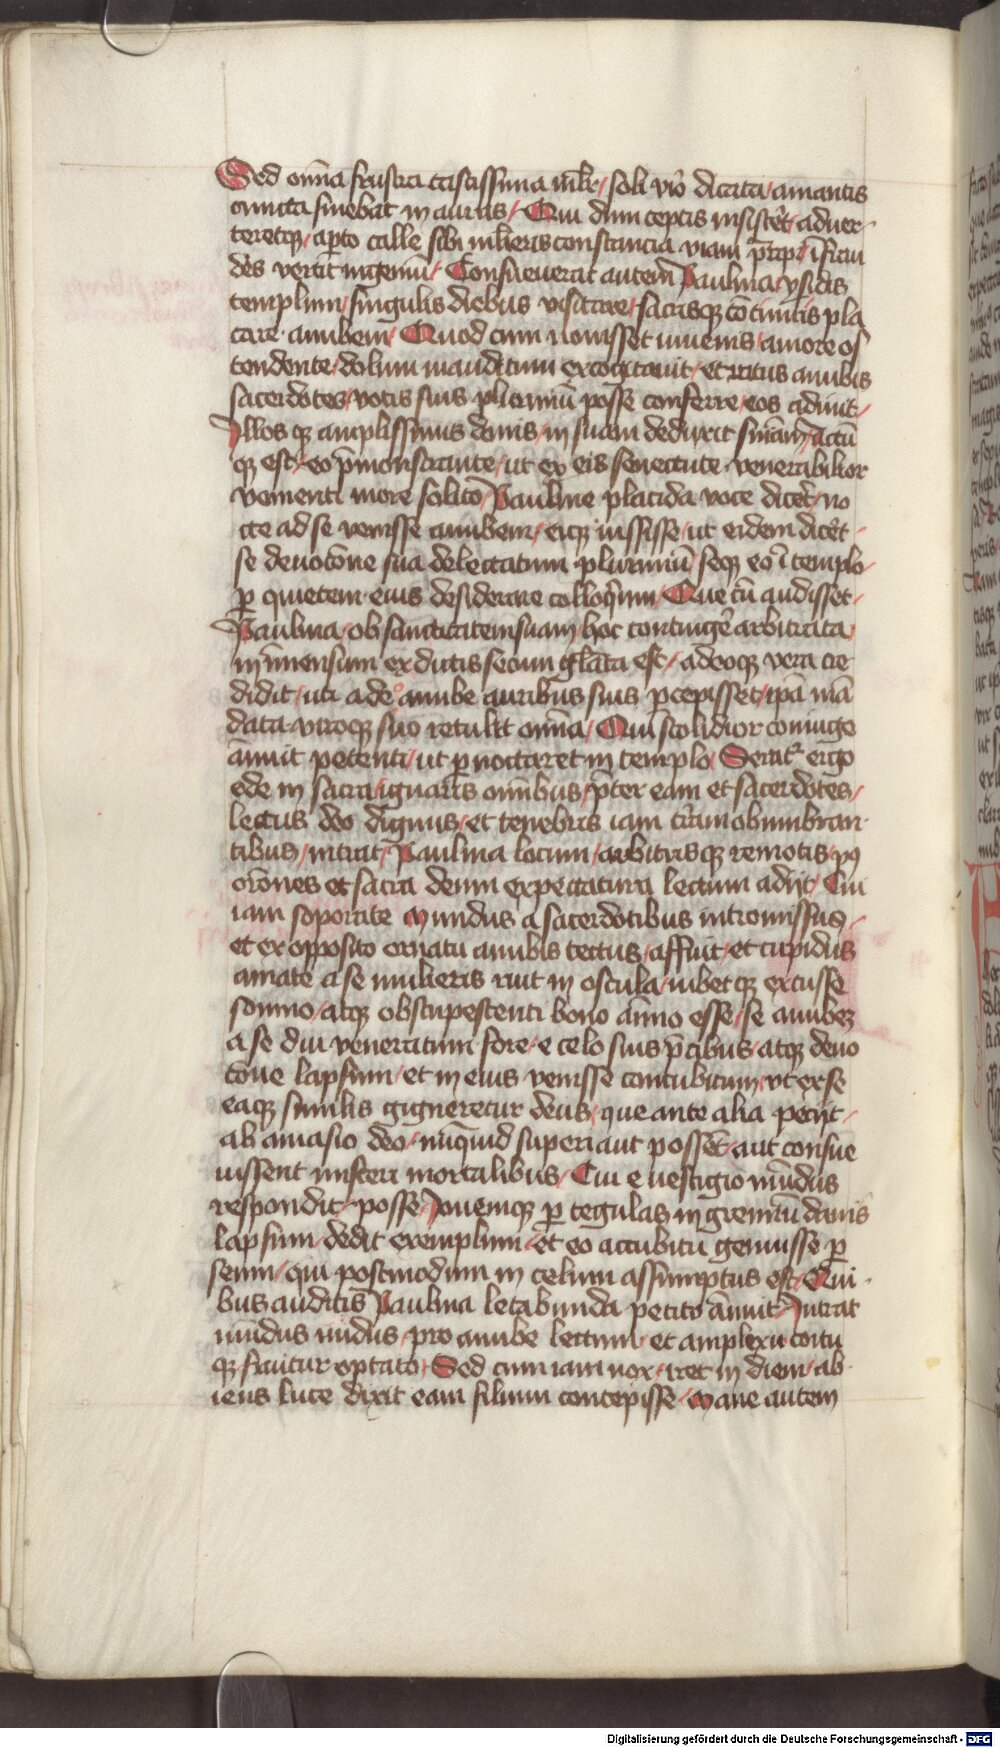 Sed om̄ia frustra castissima ml̄r / soli viro dicata / amantis
cuncta sinebat in auras / Qui dum ceptis insistēt / aduer-
teretq; / apto calle sibi mulieris constancia viam p̄rep̄ / ī ficiu
des vertit ingeniū / Consueuerat autem Paulina / ysidis
templum / singulis diebus visitare / sacrisq; cōtinuis pla
care / anubem / Quod cum nouisset iuuenis / amore os
tendente / dolum inauditum excogitauit / et ratus anubis
sacerdotes / votis suis plurimū posse conferre / eos adiuit /
Illos q; amplissimis donis / in suam deduxit sn̄iam / Actū
q; est / eo p̄monstrante / ut ex eis senectute venerabilior
venienti more solito / Pauline placida voce dicēt / no
cte ad se venisse anubem / eiq; iussisse / ut eidem dicēt
se deuotōne sua delectatum plurimū / seq; eo ī templo /
p quietem eius desiderare colloqium / Que cū audisset /
Paulina / ob sanctitatem suam / hoc contingē arbitrata
in īmensum ex dictis secum gl̄ata est / adeoq; vera cre
didit / uti a deo anube auribus suis pcepisset / ipā mā
data / viroq; suo retulit om̄ia / Qui stolidior coniuge
ānuit petenti / ut pnoctaret in templo / Sternit ergo
ede in sacra / ignaris om̄ibus / p̄ter eam et sacerdotes /
lectus deo dignus / et tenebris iam t̄ram obumbran-
tibus / intrat / Paulina locum / arbitrisq; remotis / p9
orōnes et sacra deum expectatura lectum adijt / Cui
iam soporate Mundus a sacerdotibus intromissus /
et ex opposito ornatu anubis tectus / affuit / et cupidus
amate a se mulieris ruit in oscula / iubet q; excusse
somno / atq; obstupescenti bono āimo esse / se anubez
a se diu veneratum fore / e celo suis p̄cibus / atq; deuo
tōne lapsum / et in eius venisse concubitum / vt ex se
eaq; similis gigneretur deus / que ante alia petijt /
ab amasio deo / nūquid superi aut possēt / aut consue
uissent misceri mortalibus / Cui e uestigio mūdus
respondit / posse / Iouemq; p tegulas in gremiū danis
lapsum / dedit exemplum / et eo accubitu genuisse p
seum / qui postmodum in celum assumptus est / Qui-
bus auditis Paulina letabunda petito ānuit / Intrat
mūdus nudus / pro anube lectum / et amplexu coitu
q; fruitur optato / Sed cum iam nox / iret in diem / ab-
iens luce dixit eam filium concepisse / Mane autem
Digitalisierung gefördert durch die Deutsche Forschungsgemeinschaft - DFG